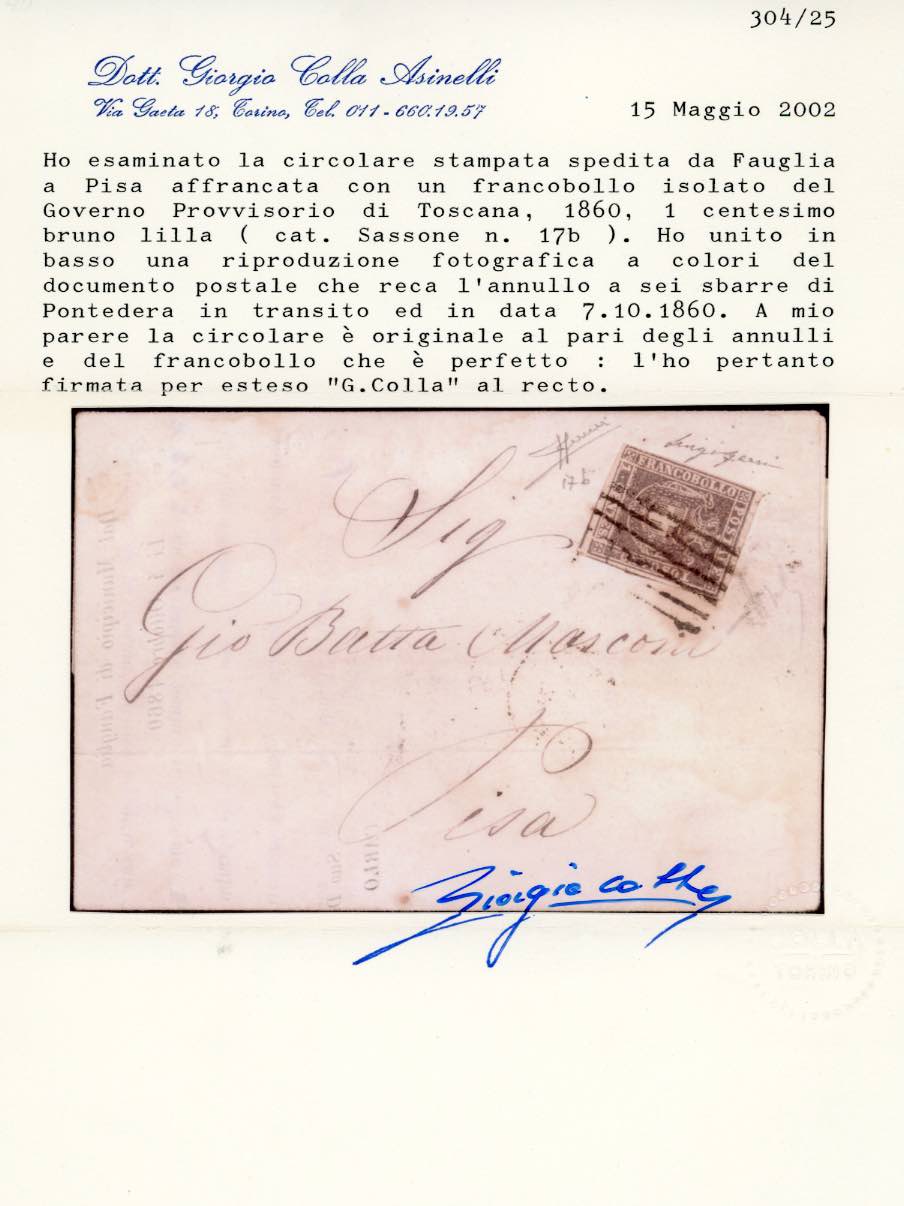 304/25
Dott. Giorgio Colla Asinelli
Via Gaeta 18, Torino, Tel. 011-660.19.57
15 Maggio 2002
Ho esaminato la circolare stampata spedita da Fauglia
a Pisa affrancata con un francobollo isolato del
Governo Provvisorio di Toscana, 1860, 1 centesimo
bruno lilla ( cat. Sassone n. 17b ). Ho unito in
basso una riproduzione fotografica a colori del
documento postale che reca l'annullo a sei sbarre di
Pontedera in transito ed in data 7.10.1860. A mio
parere la circolare è originale al pari degli annulli
e del francobollo che è perfetto : l'ho pertanto
firmata per esteso "G.Colla" al recto.
17b
FRANCOBOLLO
Sig
Gio Batta Masconi
Pisa
Dal Municipio di Fauglia
1860
Giorgio Colla